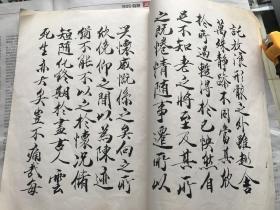 託放浪形骸之外雖趣舍
萬殊靜躁不同當其欣
於所遇暫得於己快然自
足不知老之將至及其所
之既惓情隨事遷所以
興懷感慨係之矣向之所
欣俛仰之間以為陳迹
猶不能不以之興懷況脩
短隨化終期於盡古人云
死生亦大矣豈不痛哉每